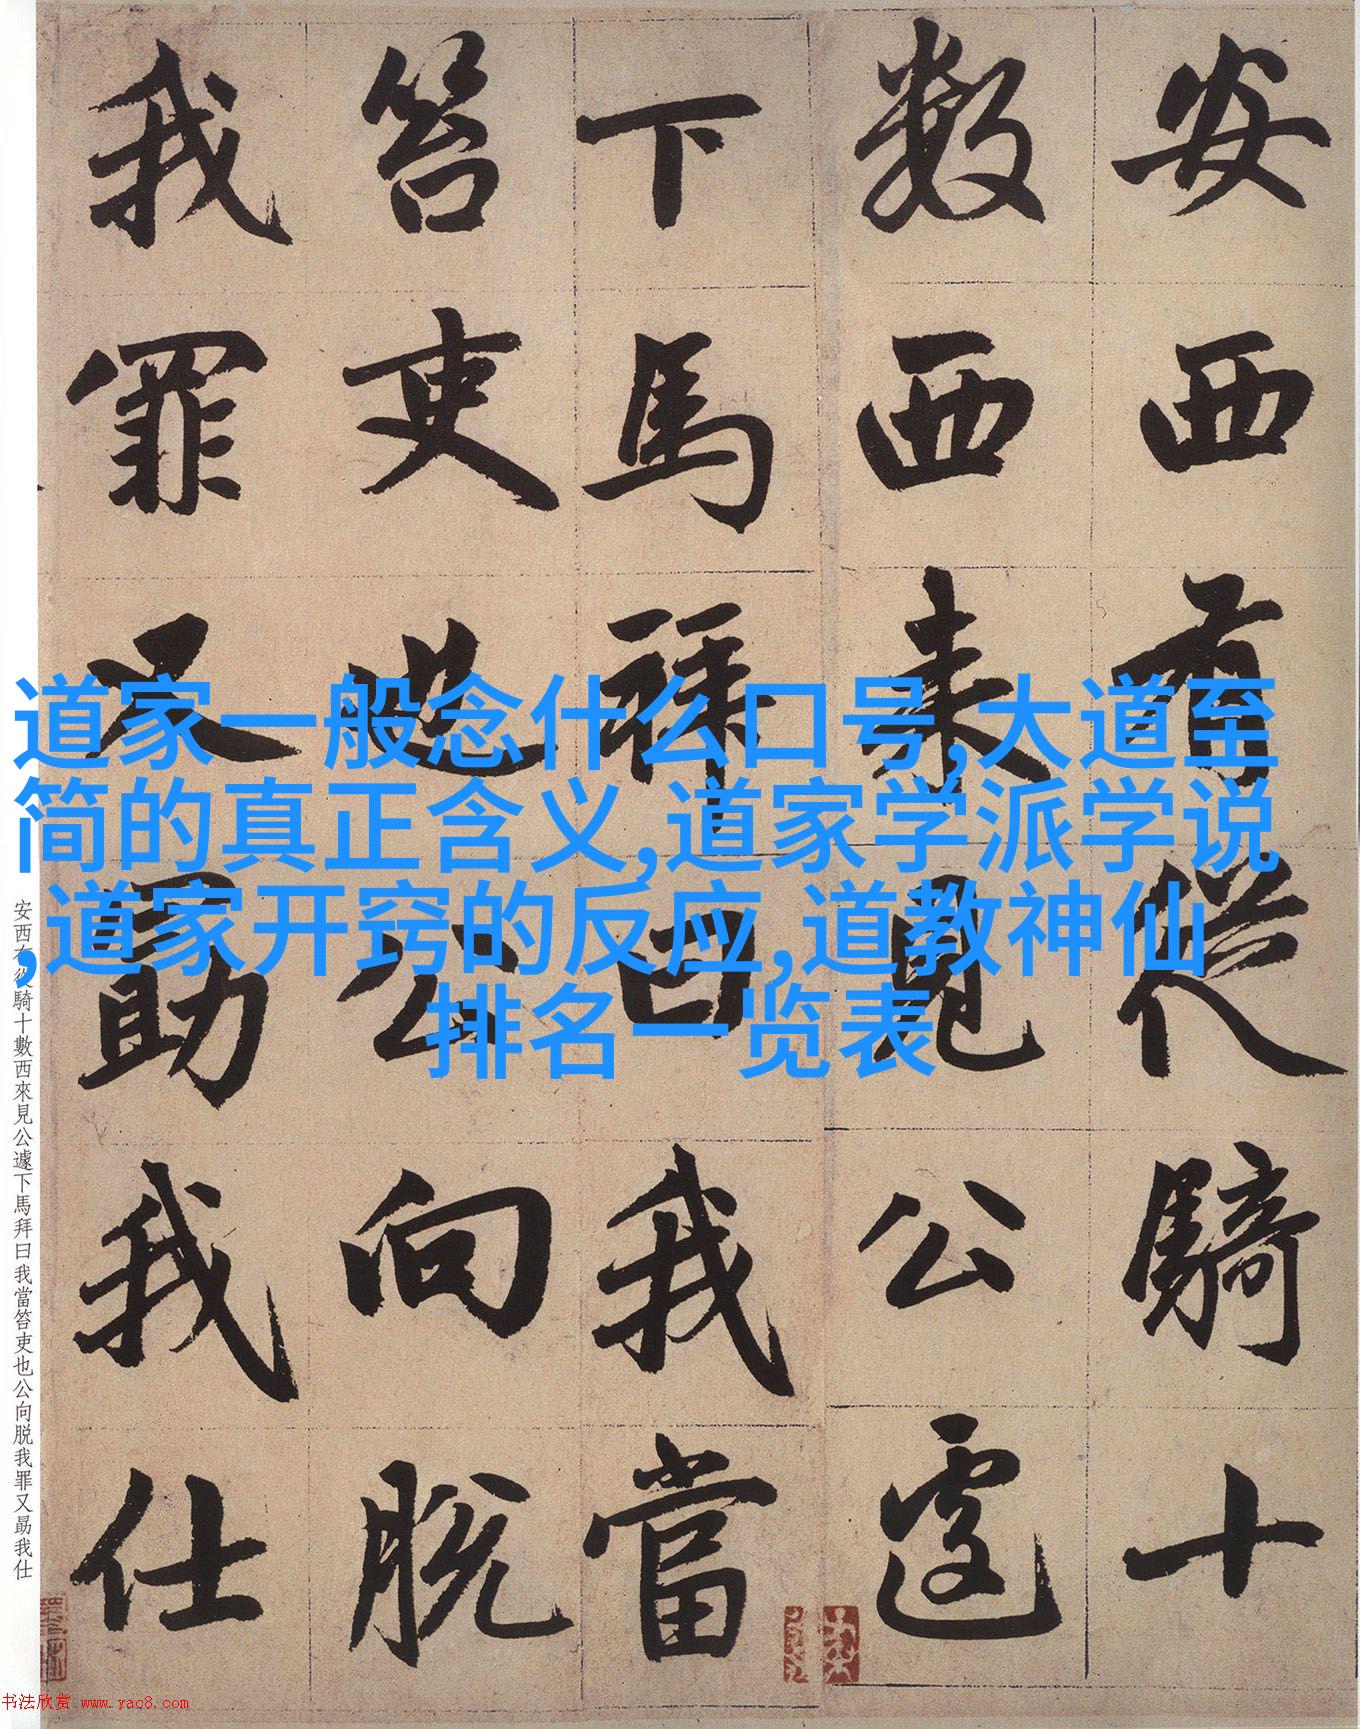 安西有從騎十
數西来見公遽
下馬拜曰我當
笞吏也公向脱
我罪又勗我仕
道家一般念什么口号,大道至
简的真正含义,道家学派学说
,道家开窍的反应,道教神仙
排名一览表
安西有從騎十數西來見公遽下馬拜曰我當笞吏也公向脱我罪又勗我仕
书法欣赏 www.yac8.com